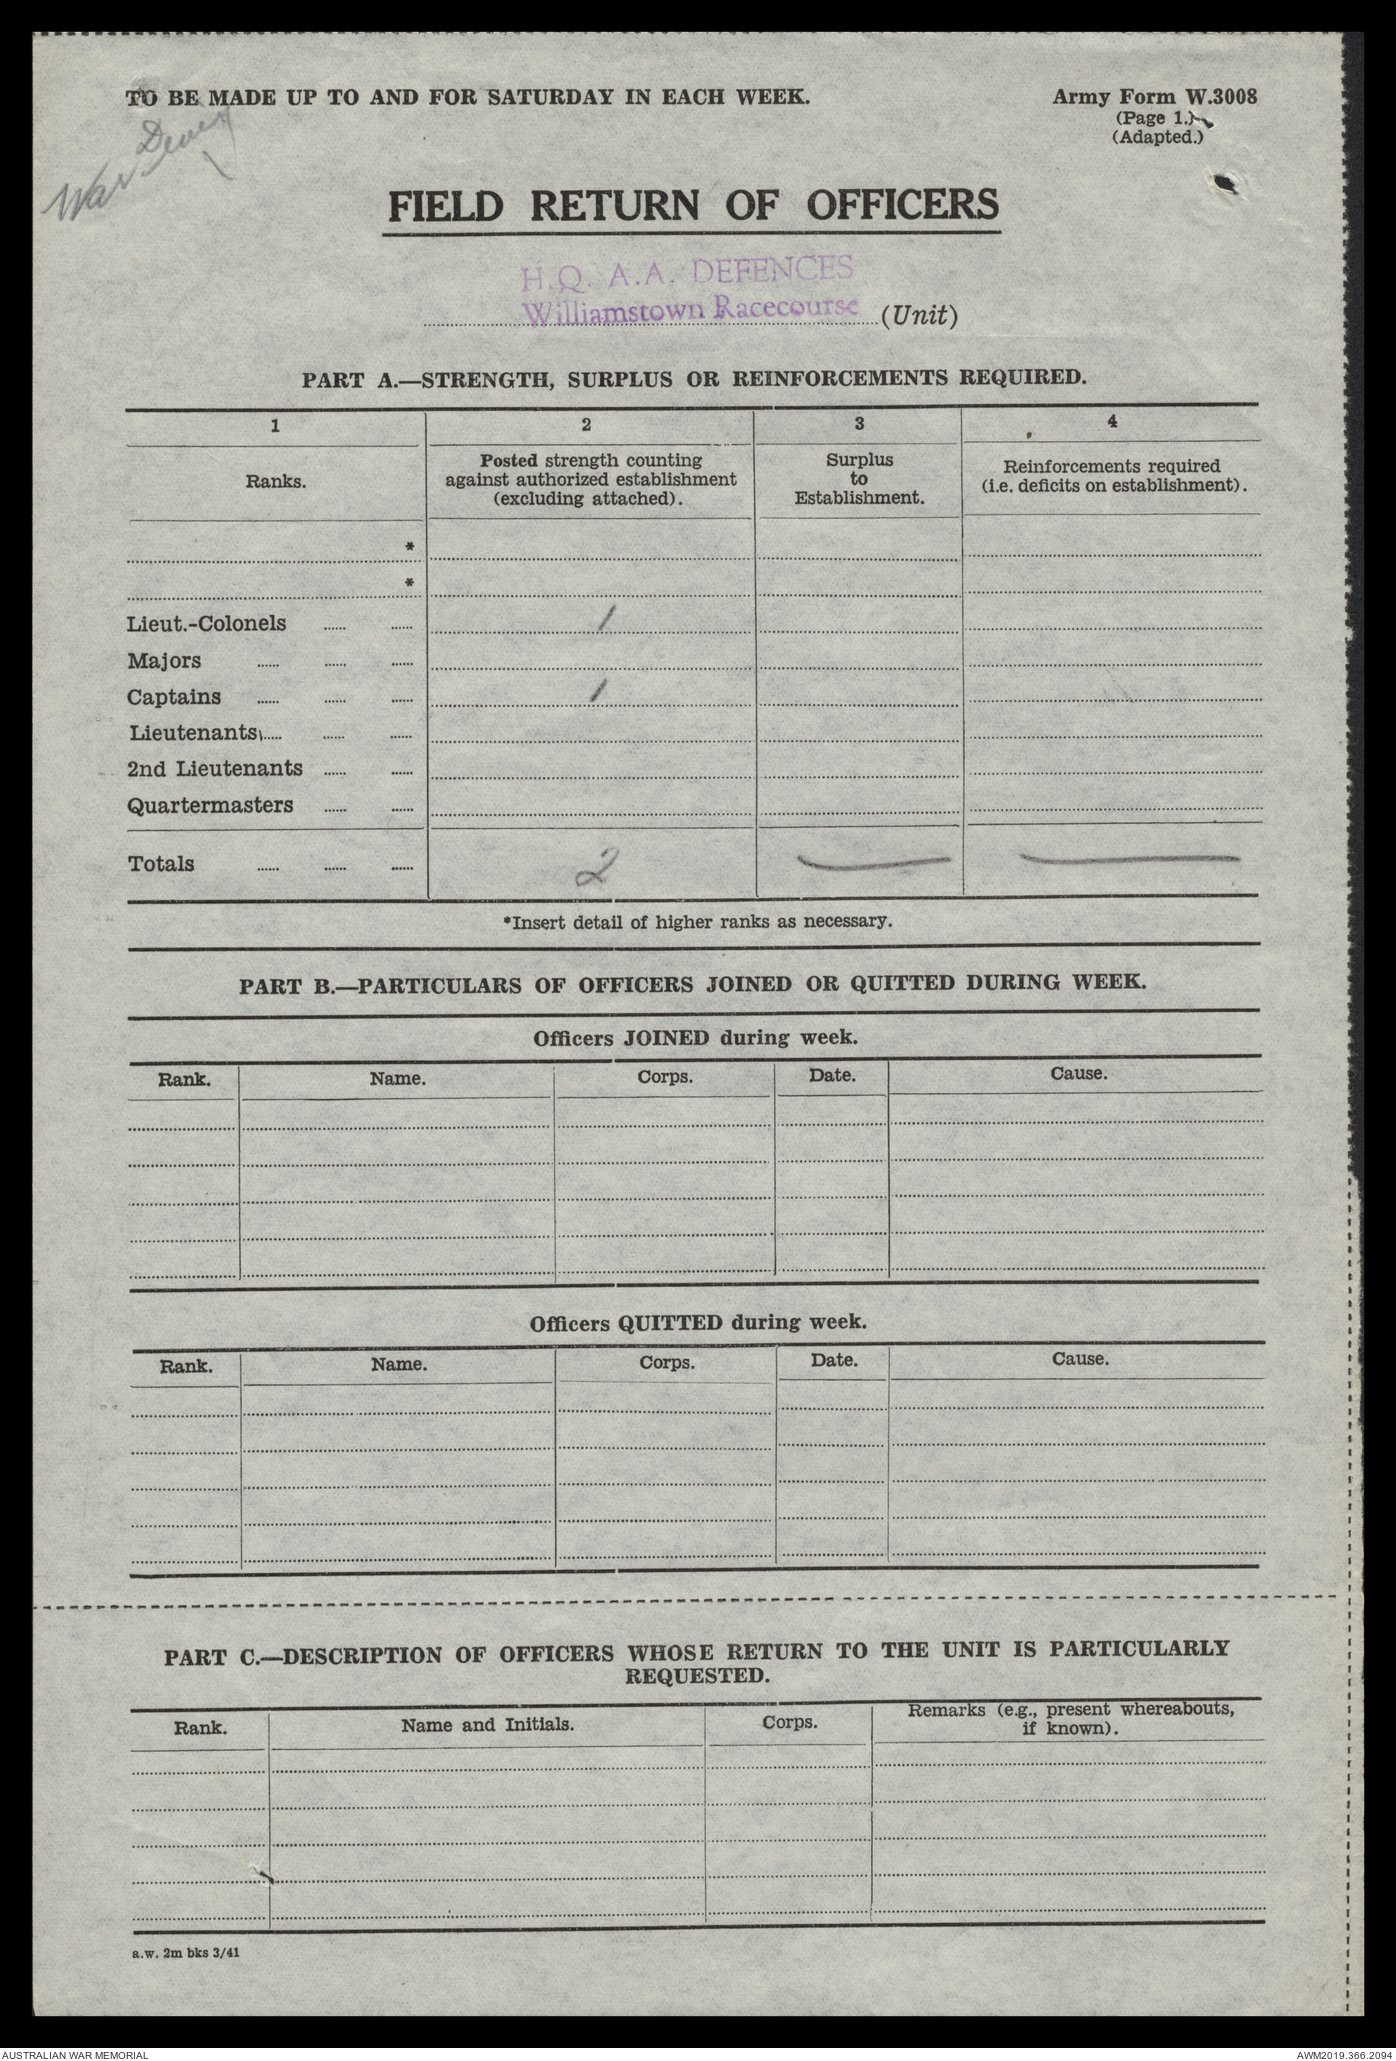 TO BE MADE UP TO AND FOR SATURDAY IN EACH WEEK.
Army Form W.3008
(Page 1.)
(Adapted.)
War
FIELD RETURN OF OFFICERS
H.Q. A.A. DEFENCES
Williamstown Racecourse (Unit)
PART A.—STRENGTH, SURPLUS OR REINFORCEMENTS REQUIRED.
1 2 3 4
Ranks.
Posted strength counting
against authorized establishment
(excluding attached).
Surplus
to
Establishment.
Reinforcements required
(i.e. deficits on establishment).
*
*
Lieut.-Colonels ...... ...... 1
Majors ...... ...... ......
Captains ...... ...... ...... 1
Lieutenants ...... ...... ......
2nd Lieutenants ...... ......
Quartermasters ...... ......
Totals ...... ...... ...... 2 — —
*Insert detail of higher ranks as necessary.
PART B.—PARTICULARS OF OFFICERS JOINED OR QUITTED DURING WEEK.
Officers JOINED during week.
Rank. Name. Corps. Date. Cause.
Officers QUITTED during week.
Rank. Name. Corps. Date. Cause.
PART C.—DESCRIPTION OF OFFICERS WHOSE RETURN TO THE UNIT IS PARTICULARLY
REQUESTED.
Rank. Name and Initials. Corps.
Remarks (e.g., present whereabouts,
if known).
a.w. 2m bks 3/41
AUSTRALIAN WAR MEMORIAL
AWM2019.366.2094